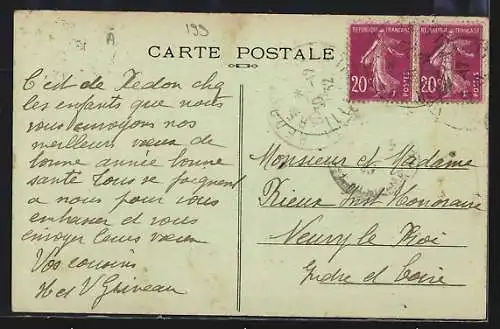 199
A
CARTE POSTALE
REPUBLIQUE FRANCAISE
20c POSTES
REPUBLIQUE FRANCAISE
20c POSTES
C'est de Redon chez
les enfants que nous
vous envoyons nos
meilleurs vœux de
bonne année bonne
santé Tous se joignent
a nous pour vous
embrasser et vous
envoyer leurs vœux
Vos cousins
H et V Griveau
Monsieur et Madame
Rieux Inst Honoraire
Neuvy le Roi
Indre et Loire